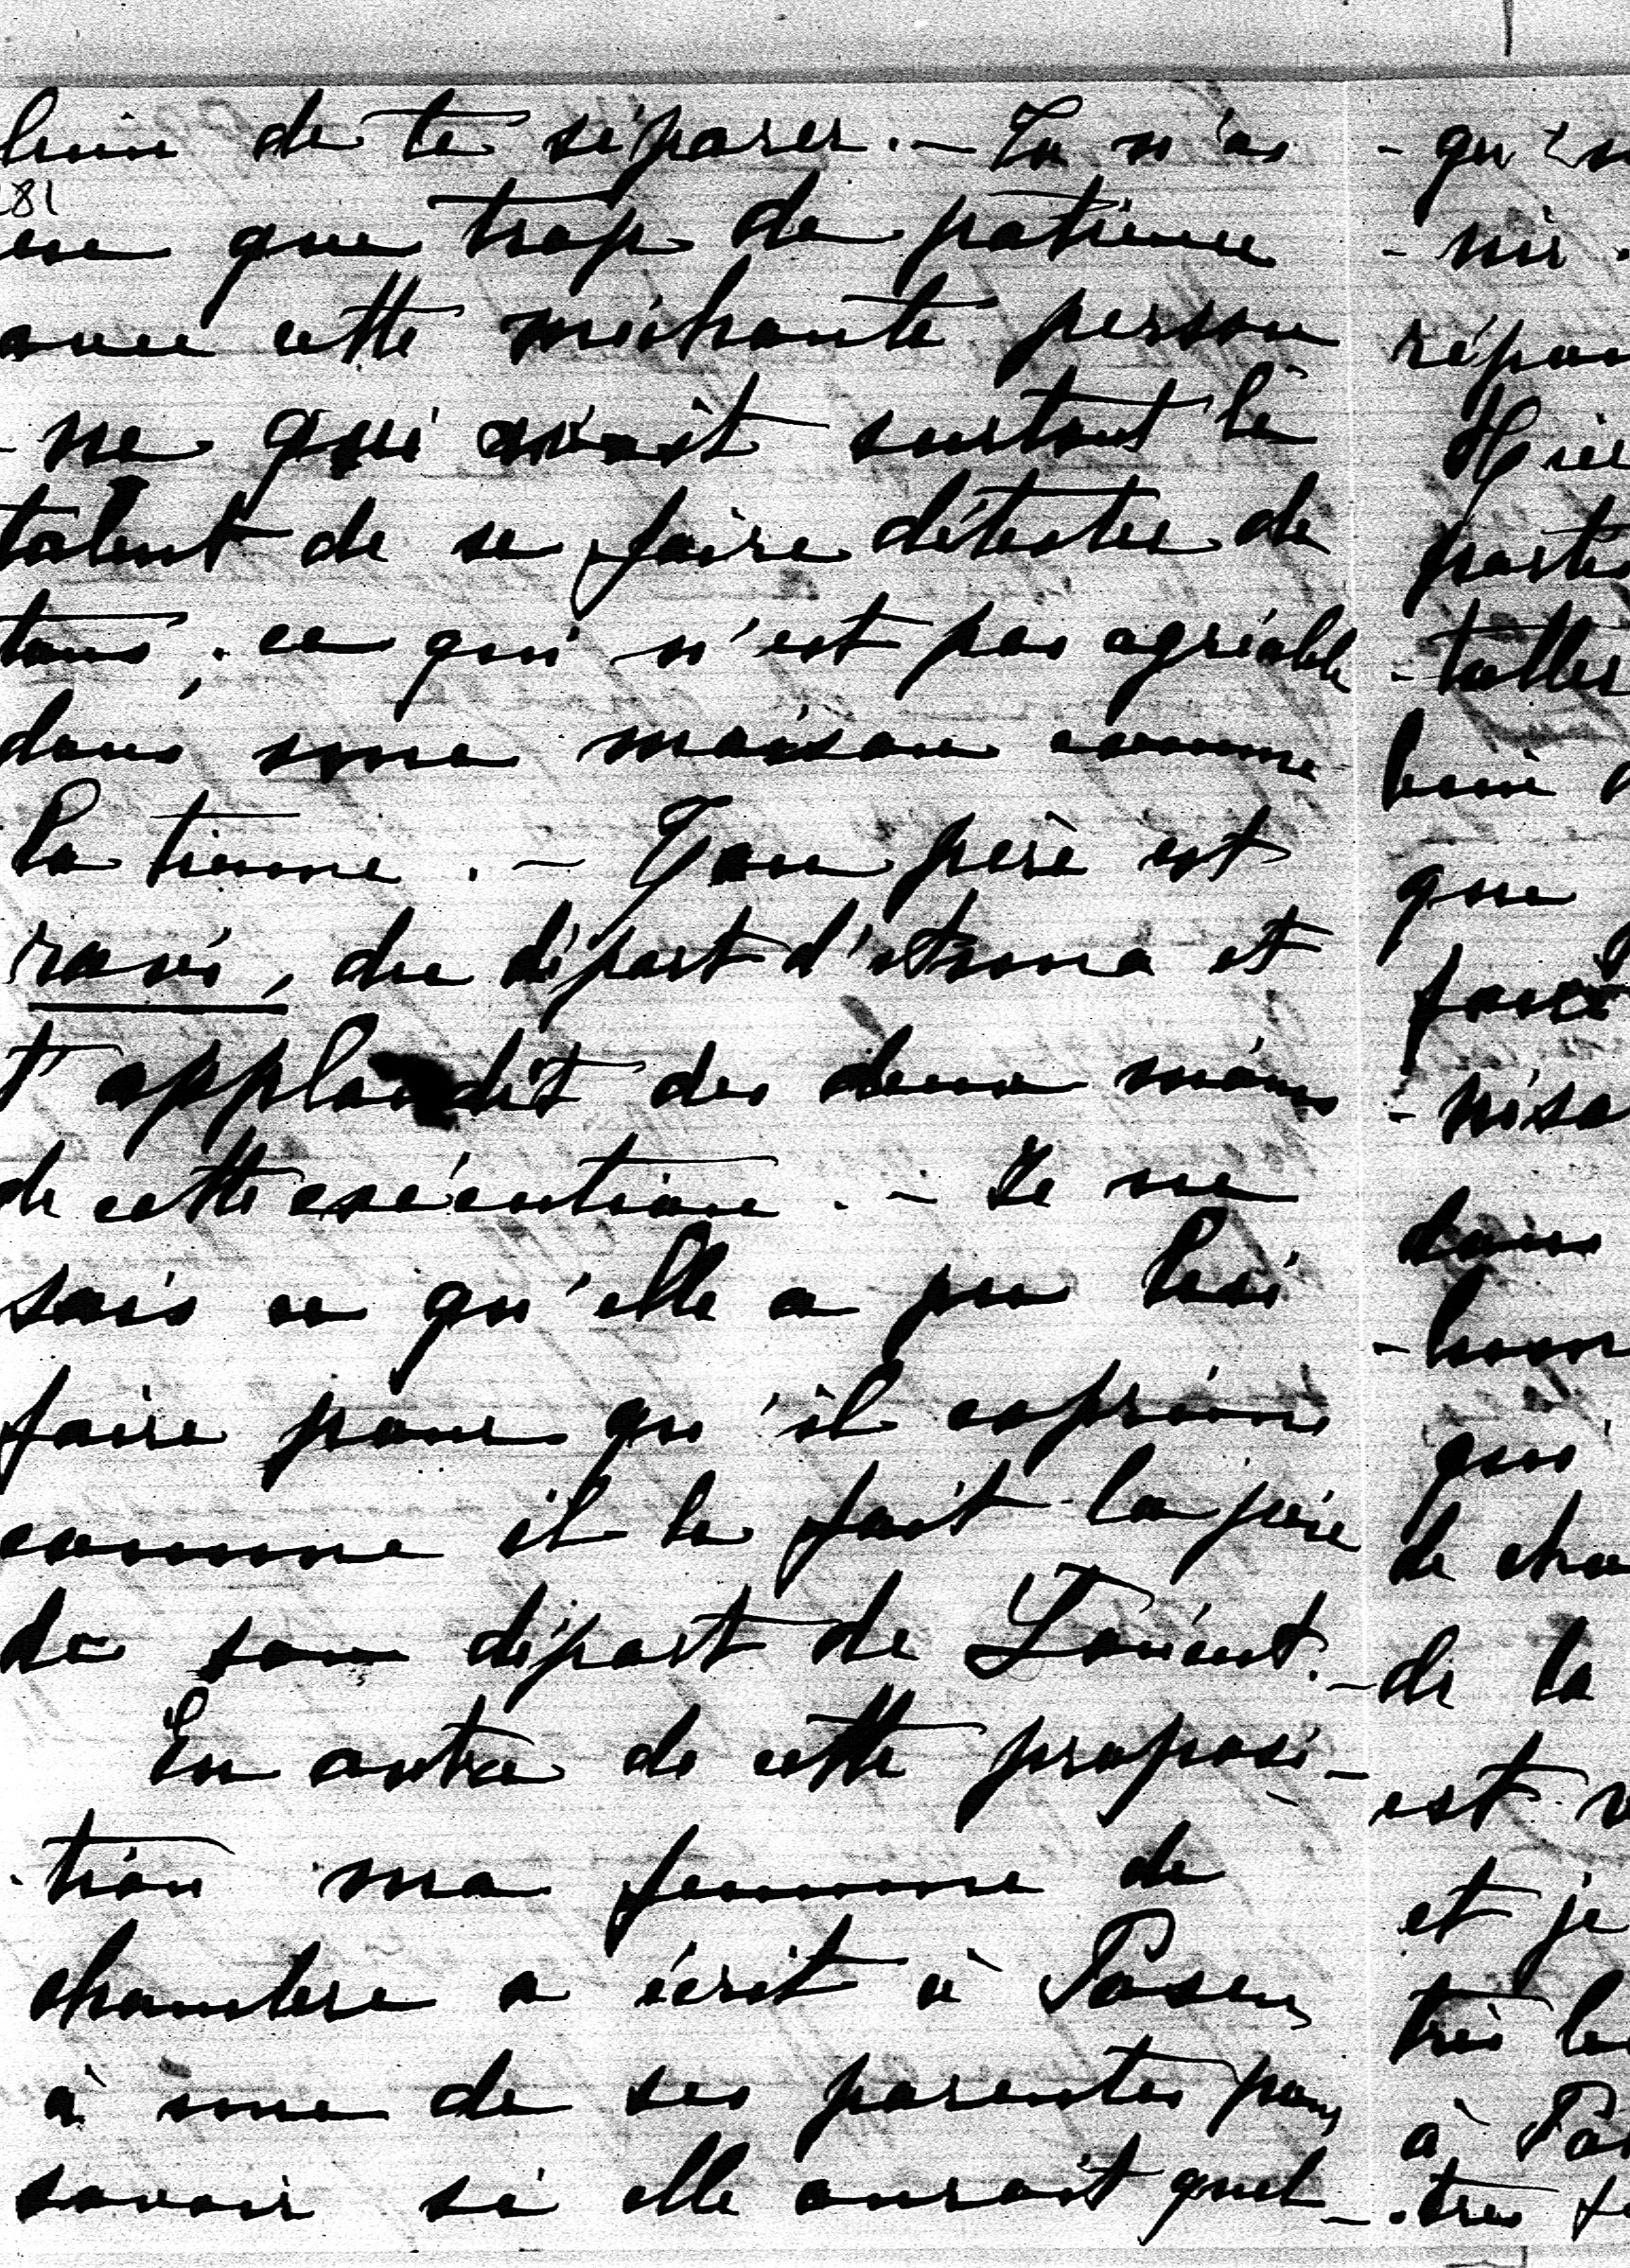 bien de te séparer. – Tu n'as
281
eu que trop de patience
avec cette méchante person
- ne qui avait surtout le
talent de se faire détester de
tous, ce qui n'est pas agréable
dans une maison comme
la tienne. – Ton père est
ravi, du départ d' et
t'applaudit des deux mains
de cette exécution. – Je ne
sais ce qu'elle a pu lui
faire pour qu'il exprime
comme il le fait la joie
de son départ de Lorient. –
En outre de cette proposi-
- tion ma femme de
chambre a écrit à
à une de ses parentes pour
savoir si elle aurait quel-
- qu'
- nir.
Hier
- taller
que
- nisa
dans
qui
de
de la
est
et je
très
à
- tres